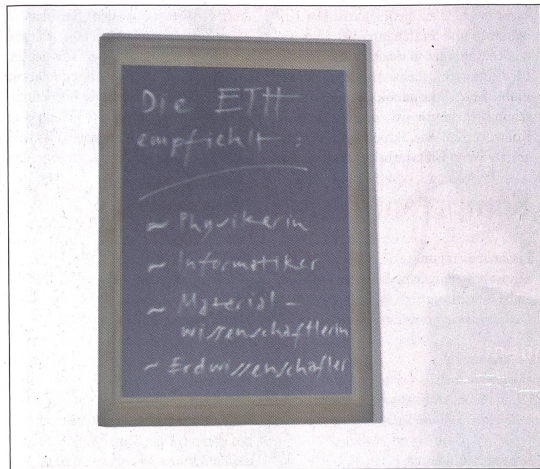 Die ETH
empfiehlt :
~ Physikerin
~ Informatiker
~ Material-
wissenschaftlerin
~ Erdwissenschafler